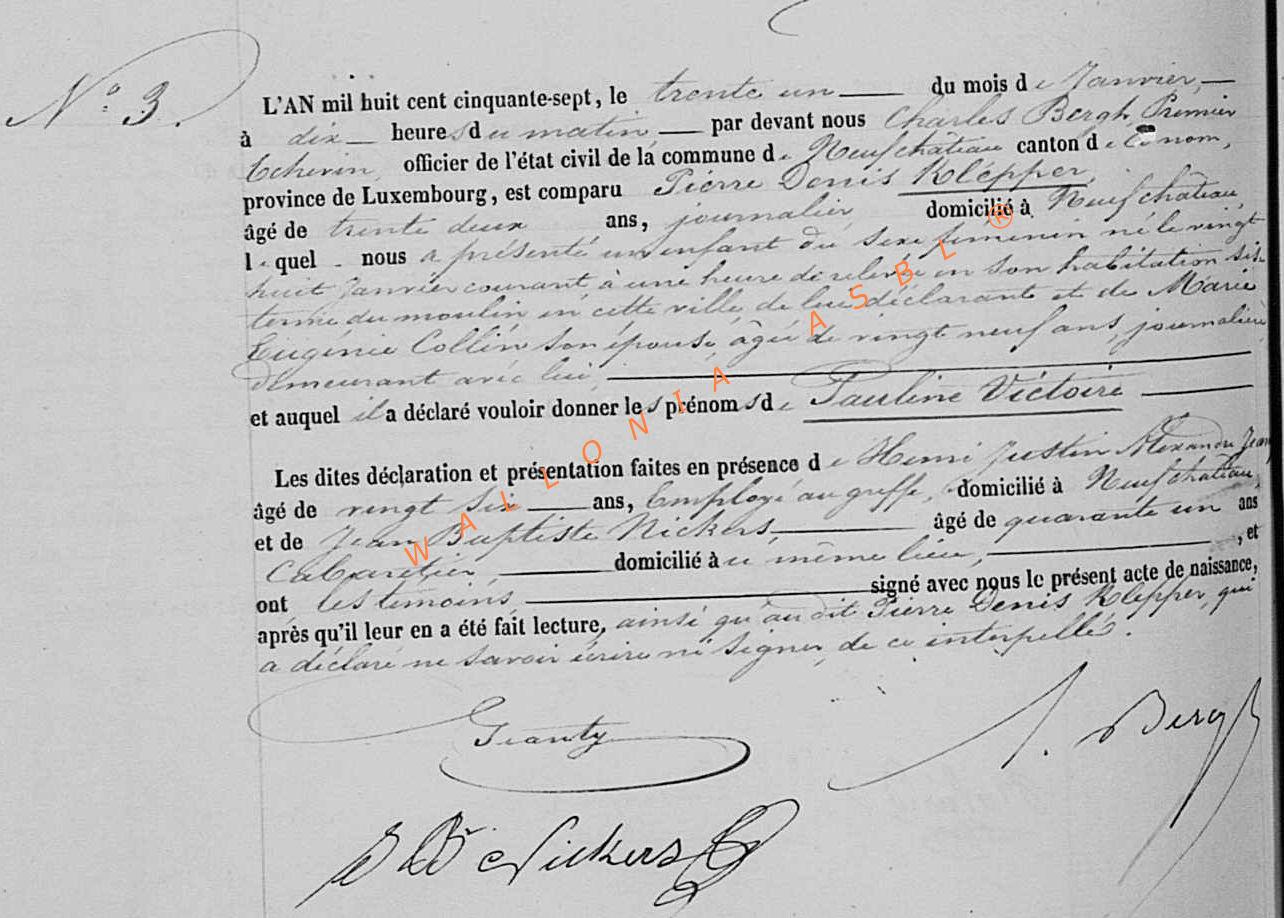 N° 3.
L'AN mil huit cent cinquante-sept, le trente un du mois de Janvier,
à dix heures du matin par devant nous Charles Bergh, Premier
Echevin, officier de l'état civil de la commune de Neufchâteau canton de ce nom,
province de Luxembourg, est comparu Pierre Denis Klepper,
âgé de trente deux ans, journalier domicilié à Neufchâteau,
lequel nous a présenté un enfant du sexe féminin né le vingt
huit Janvier courant à une heure de relevée en son habitation sis
du moulin en cette ville de lui déclarant et de Marie
Eugénie Collin son épouse, âgée de vingt neuf ans, journalière,
demeurant avec lui,
et auquel il a déclaré vouloir donner les prénoms de Pauline Victoire
Les dites déclaration et présentation faites en présence de Henri Justin Alexandre
âgé de vingt six ans, Employé au greffe, domicilié à Neufchâteau,
et de Jean Baptiste Nickers, âgé de quarante un ans
Cabaretier, domicilié à u même lieu, , et
ont les temoins, signé avec nous le présent acte de naissance,
après qu'il leur en a été fait lecture, ainsi qu'au dit Pierre Denis Klepper, qui
a déclaré ne savoir écrire ni signer, de ce interpellé.
Bergh
JBte Nickers
WALLONIA ASBL ®